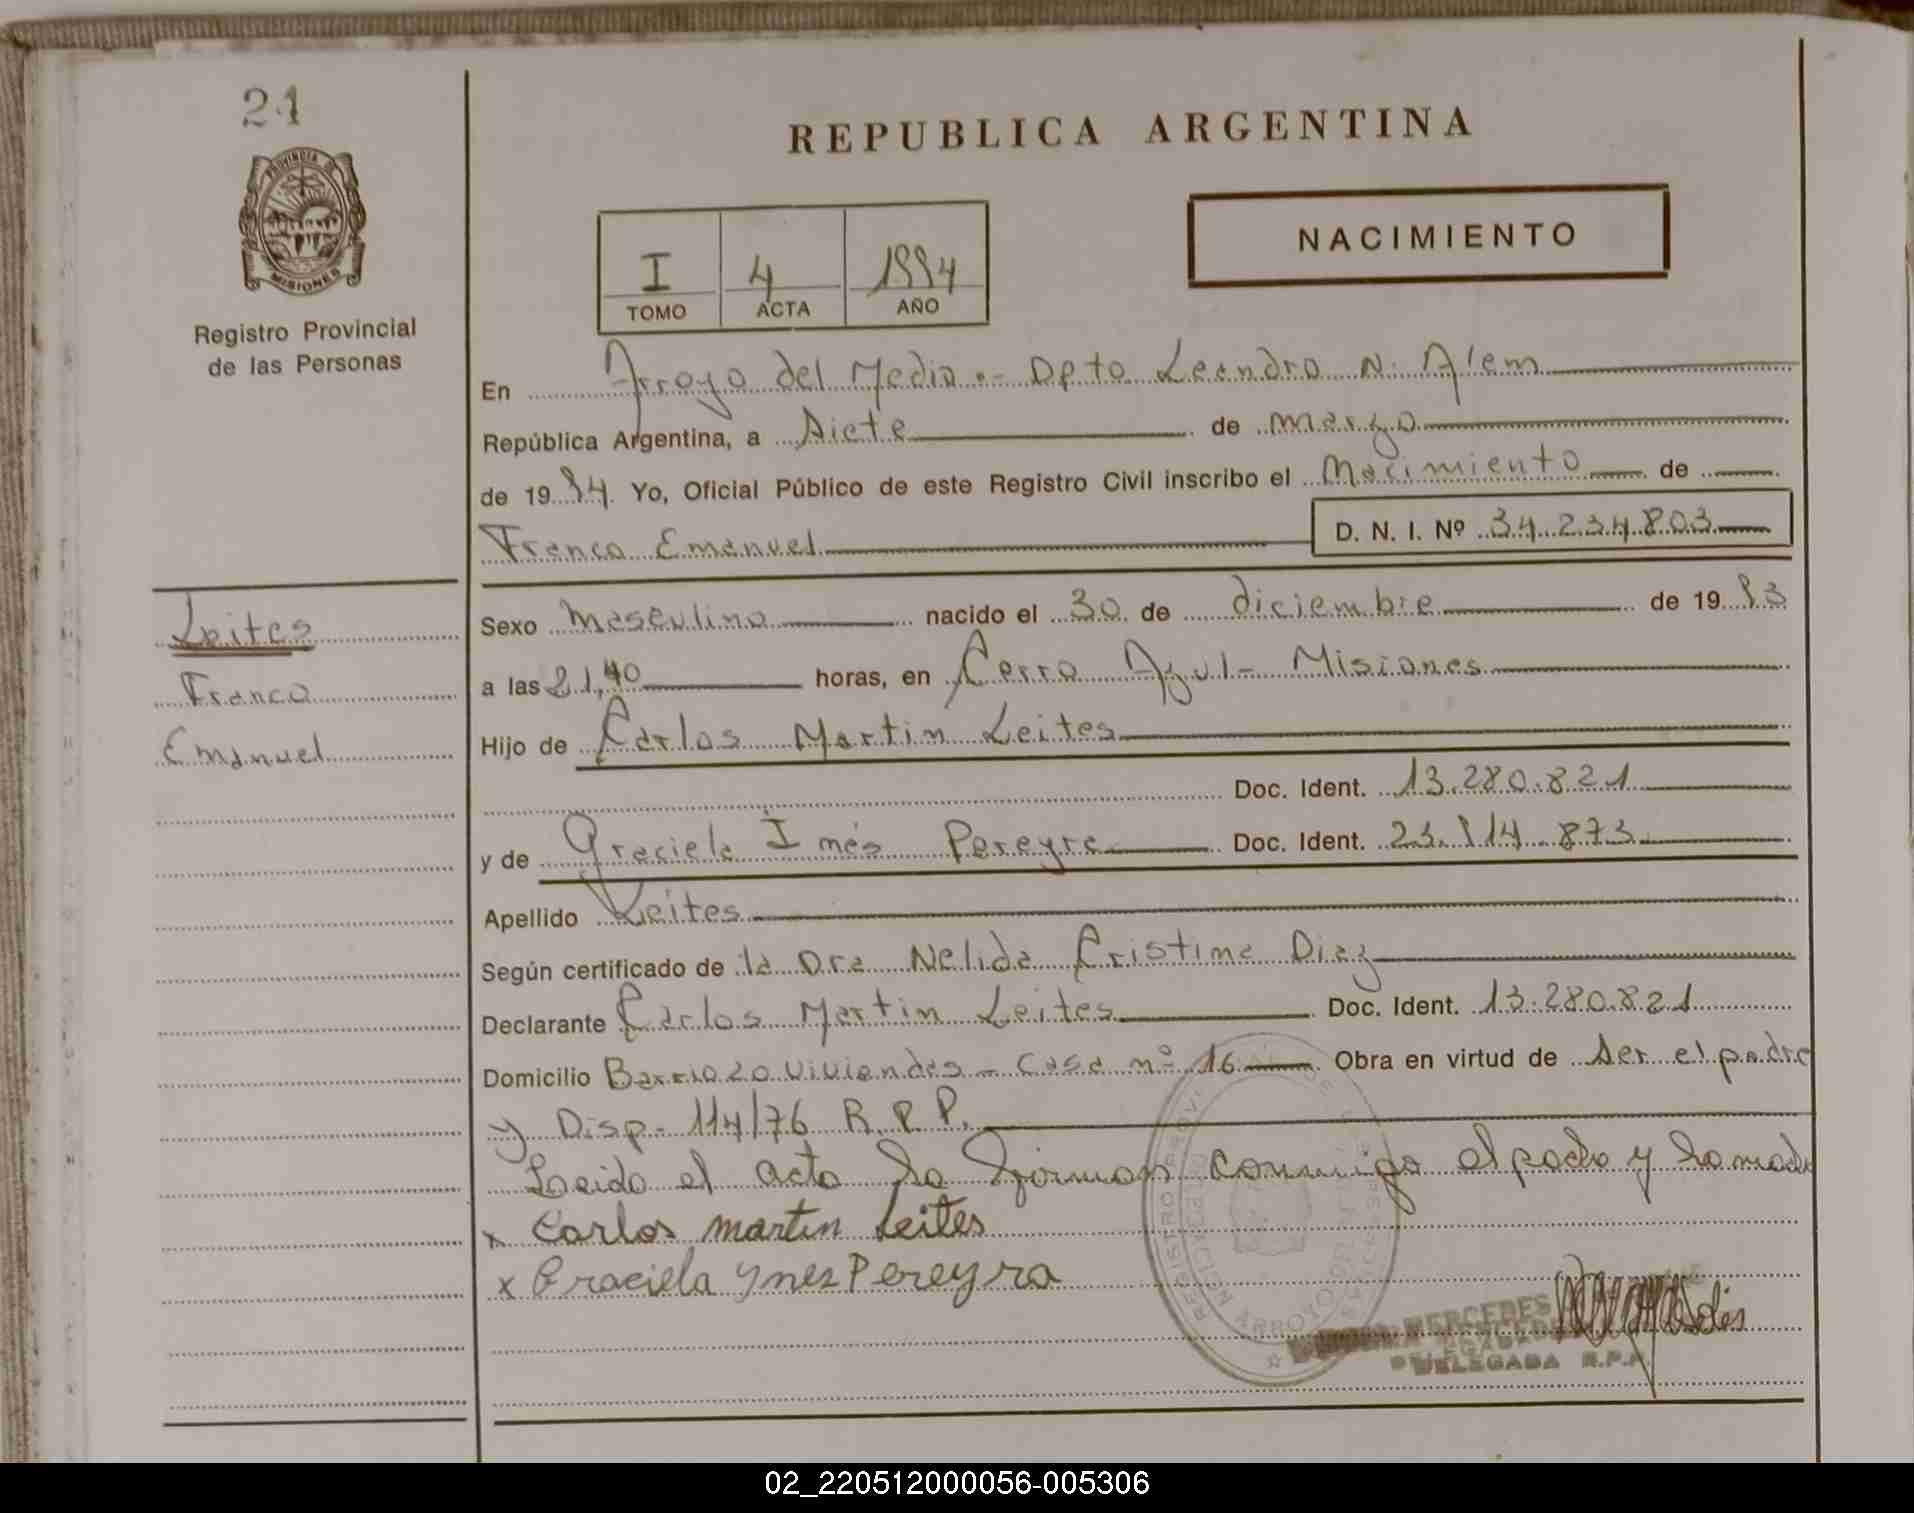 21
PROVINCIA DE
MISIONES
Registro Provincial
de las Personas
REPUBLICA ARGENTINA
I 4 1994
TOMO ACTA AÑO
NACIMIENTO
En Arroyo del Medio.- Dpto Leandro N. Alem
República Argentina, a Siete de marzo
de 19 94. Yo, Oficial Público de este Registro Civil inscribo el Nacimiento de
Franco Emanuel D. N. I. Nº 34.234.803
Leites
Franco
Emanuel
Sexo Masculino nacido el 30 de diciembre de 19 93
a las 21,40 horas, en Cerro Azul - Misiones
Hijo de Carlos Martin Leites
Doc. Ident. 13.280.821
y de Graciela Inés Pereyra Doc. Ident. 23.914.873
Apellido Leites
Según certificado de la Dra Nelida Cristina Diaz
Declarante Carlos Martin Leites Doc. Ident. 13.280.821
Domicilio Barrio 20 Viviendas - Casa nº 16 Obra en virtud de ser el padre
y Disp. 114/76 R.P.P.
Leido el acta la firman conmigo el padre y la madre
x Carlos martin Leites
x Graciela Ynez Pereyra
MERCEDES
DELEGADA R.P.P.
02_220512000056-005306